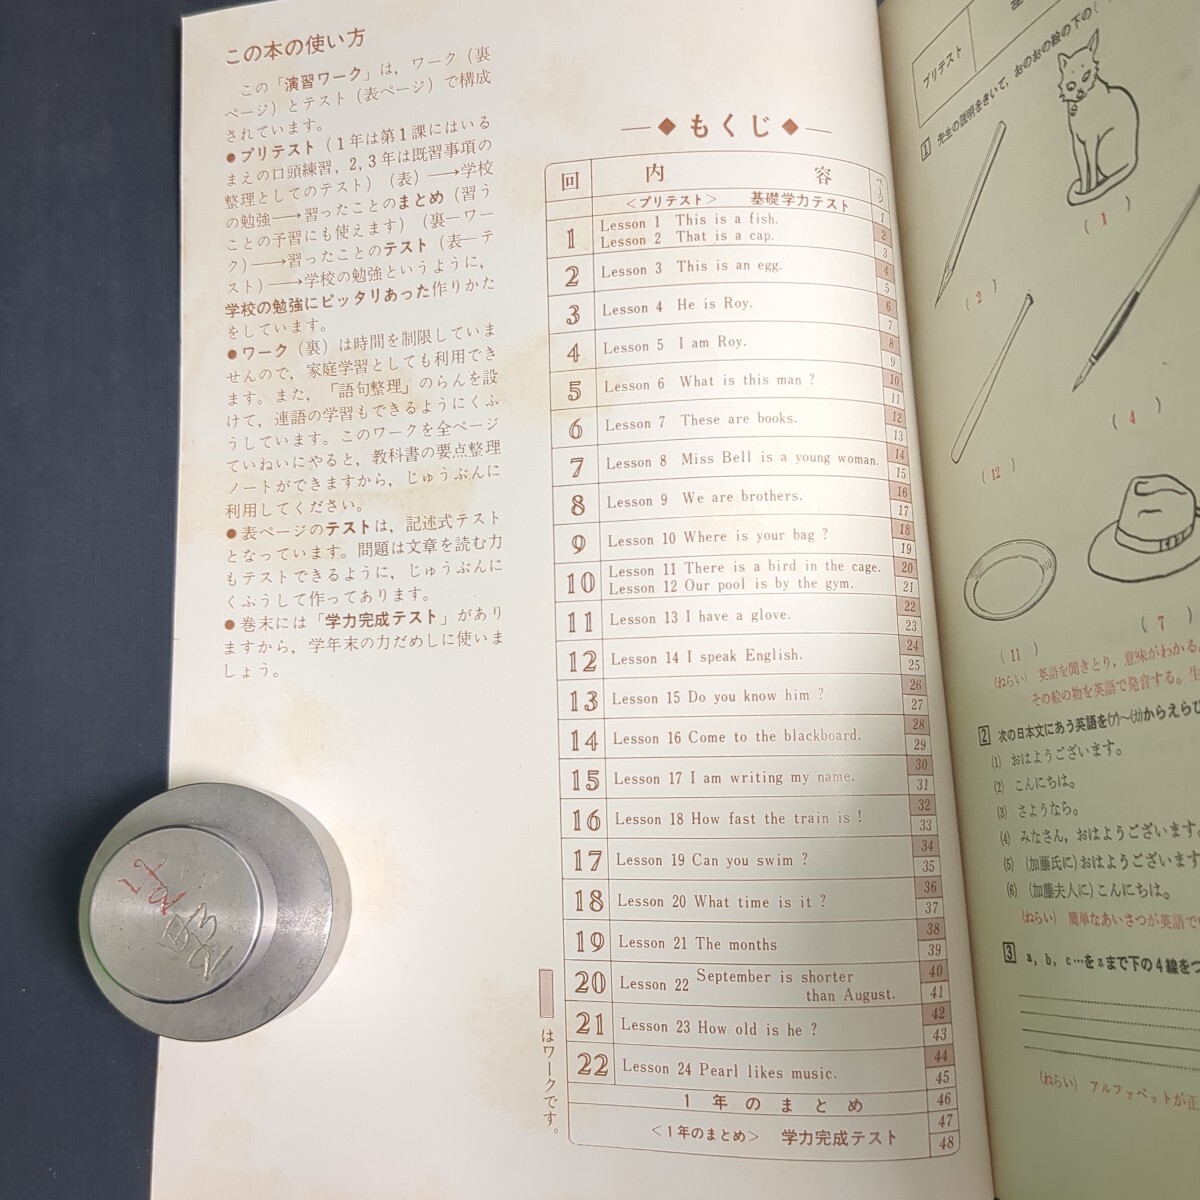 この本の使い方
この「演習ワーク」は，ワーク（裏
ページ）とテスト（表ページ）で構成
されています。
●プリテスト（1年は第1課にはいる
まえの口頭練習，2，3年は既習事項の
整理としてのテスト）（表）→学校
の勉強→習ったことのまとめ（習う
ことの予習にも使えます）（裏—ワー
ク）→習ったことのテスト（表—テ
スト）→学校の勉強というように，
学校の勉強にピッタリあった作りかた
をしています。
●ワーク（裏）は時間を制限していま
せんので，家庭学習としても利用でき
ます。また，「語句整理」のらんを設
けて，連語の学習もできるようにくふ
うしています。このワークを全ページ
ていねいにやると，教科書の要点整理
ノートができますから，じゅうぶんに
利用してください。
●表ページのテストは，記述式テスト
となっています。問題は文章を読む力
もテストできるように，じゅうぶんに
くふうして作ってあります。
●巻末には「学力完成テスト」があり
ますから，学年末の力だめしに使いま
しょう。
もくじ
回 内容 ページ
＜プリテスト＞ 基礎学力テスト 1
1 Lesson 1 This is a fish. 2
Lesson 2 That is a cap. 3
2 Lesson 3 This is an egg. 4 5
3 Lesson 4 He is Roy. 6 7
4 Lesson 5 I am Roy. 8 9
5 Lesson 6 What is this man ? 10 11
6 Lesson 7 These are books. 12 13
7 Lesson 8 Miss Bell is a young woman. 14 15
8 Lesson 9 We are brothers. 16 17
9 Lesson 10 Where is your bag ? 18 19
10 Lesson 11 There is a bird in the cage. 20
Lesson 12 Our pool is by the gym. 21
11 Lesson 13 I have a glove. 22 23
12 Lesson 14 I speak English. 24 25
13 Lesson 15 Do you know him ? 26 27
14 Lesson 16 Come to the blackboard. 28 29
15 Lesson 17 I am writing my name. 30 31
16 Lesson 18 How fast the train is ! 32 33
17 Lesson 19 Can you swim ? 34 35
18 Lesson 20 What time is it ? 36 37
19 Lesson 21 The months 38 39
20 Lesson 22 September is shorter 40
than August. 41
21 Lesson 23 How old is he ? 42 43
22 Lesson 24 Pearl likes music. 44 45
1年のまとめ 46
47
＜1年のまとめ＞ 学力完成テスト 48
はワークです。
プリテスト
1 先生の説明をきいて，おのおの絵の下の（
（ 1 ）
（ 2 ）
（ 4 ）
（ 12 ）
（ 7 ）
（ 11 ）
（ねらい） 英語を聞きとり，意味がわかる。
その絵の物を英語で発音する。生
2 次の日本文にあう英語を(ア)〜(カ)からえらび
(1) おはようございます。
(2) こんにちは。
(3) さようなら。
(4) みなさん，おはようございます。
(5) （加藤氏に）おはようございます
(6) （加藤夫人に）こんにちは。
（ねらい） 簡単なあいさつが英語で
3 a, b, c…をzまで下の4線をつ
（ねらい） アルファベットが正